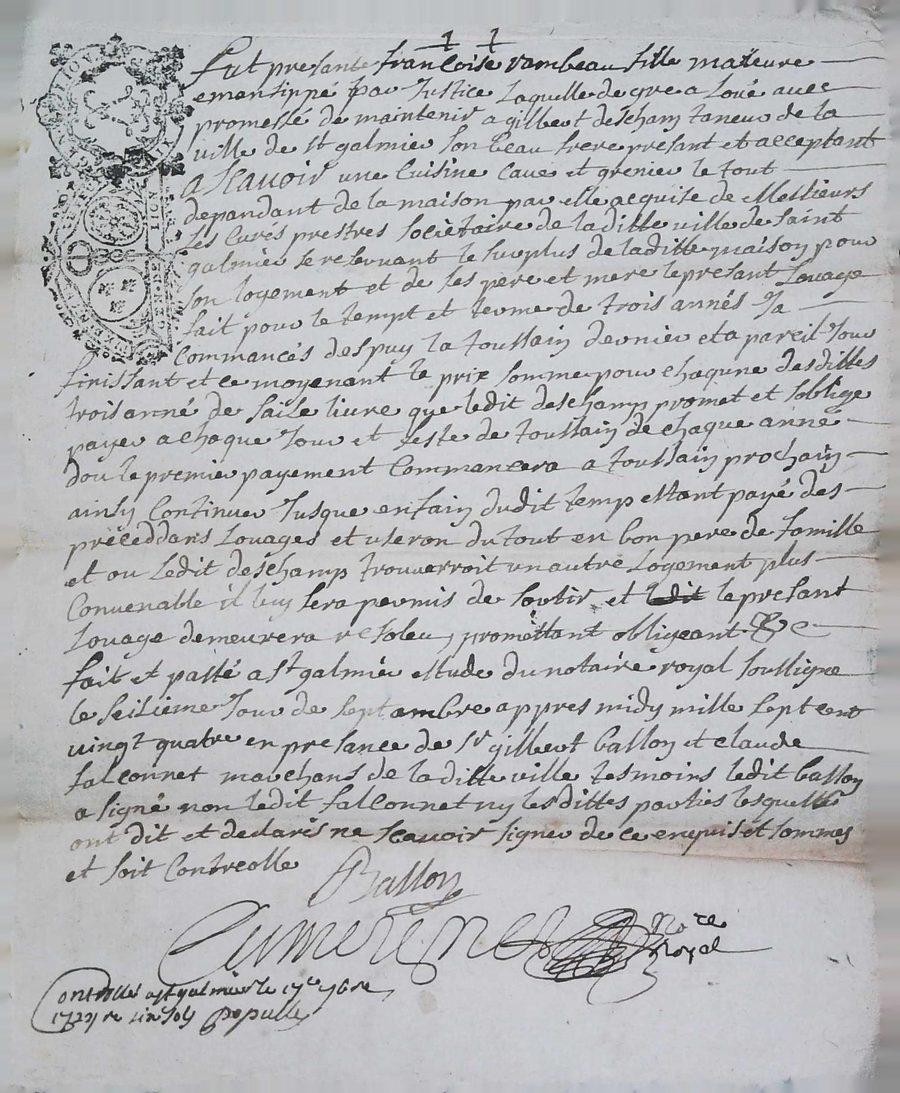 1 1
fut presante francoise rambeau fille mateure
emansippé par Justice Laquelle de gre a Loué avec
promesse de maintenir a gilbert deschamp taneur de la
ville de st galmier son beau frere presant et acceptant
a scavoir une Cuisine Cave et grenier le tout
depandant de la maison par elle acquise de Messieurs
Les Curés prestres sociètaire de laditte ville de saint
galmier se reservant le surplus de laditte maison pour
son logement et de ses pere et mere le presant Louage
fait pour le tempt et terme de trois annés Ja
Commancés despuy la toussain dernier et a pareil Jour
finissant et ce moyenant le prix somme pour chaqune desdittes
trois anné de saise livre que ledit deschamp promet et soblige
payer a chaque Jour et feste de toussain de chaque anné
dou le premier payement Commancera a toussain prochain
ainsy Continuer Jusque en fain dudit temp estant payé des
préceddans Louages et useron du tout en bon pere de famille
et ou Ledit deschamp trouverroit un autre Logement plus
Convenable il luy sera permis de sortir et ledit le presant
Louage demeurera resoleu, promettant obligeant &c
fait et passé a st galmier estude du notaire royal soussigne
le seisieme Jour de septambre appres midy mille sept cent
vingt quatre en presance de sr gilbert ballon et claude
falconnet marchans de la ditte ville tesmoins ledit ballon
a signé non ledit falconnet ny lesdittes parties lesquelle
ont dit et declarés ne scavoir signer de ce enquis et sommes
et soit Controlle
Ballon
Nore
Royal
Controllé a st galmier le 17e 7bre
1724 re six sols